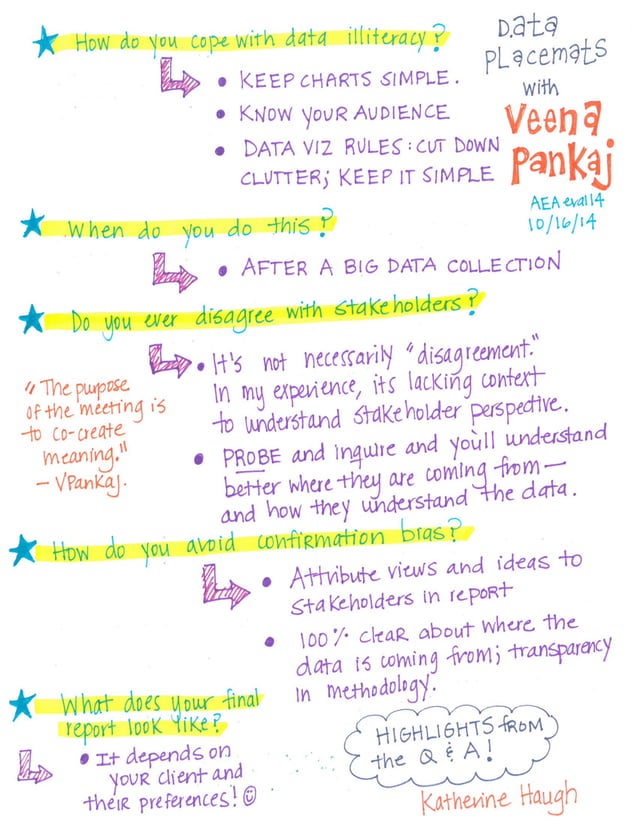 Data
Placemats
with
Veena
Pankaj
AEA eval14
10/16/14
How do you cope with data illiteracy?
• KEEP CHARTS SIMPLE.
• KNOW YOUR AUDIENCE
• DATA VIZ RULES: CUT DOWN
CLUTTER; KEEP IT SIMPLE
When do you do this?
• AFTER A BIG DATA COLLECTION
Do you ever disagree with stakeholders?
• It's not necessarily "disagreement."
In my experience, its lacking context
to understand stakeholder perspective.
• PROBE and inquire and you'll understand
better where they are coming from—
and how they understand the data.
"The purpose
of the meeting is
to co-create
meaning."
– VPankaj.
How do you avoid confirmation bias?
• Attribute views and ideas to
stakeholders in report
• 100% clear about where the
data is coming from; transparency
in methodology.
What does your final
report look like?
• It depends on
your client and
their preferences! ☺
HIGHLIGHTS FROM
the Q & A!
Katherine Haugh